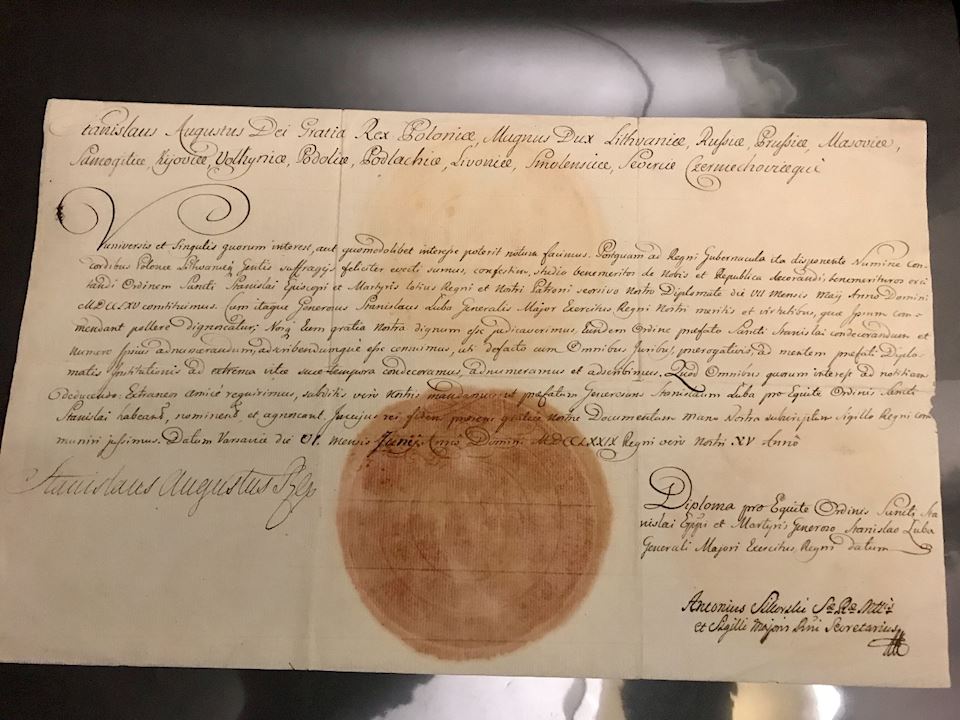 Stanislaus Augustus Dei Gratia Rex Poloniæ, Magnus Dux Lithvaniæ, Russiæ, Prussiæ, Masoviæ,
Samogitiæ, Kijoviæ, Volhyniæ, Podoliæ, Podlachiæ, Livoniæ, Smolensciæ, Severiæ Czerniechoviæqué
Vniversis et Singulis quorum interest, aut quomodolibet interesse poterit notum facimus. Postquam ad Regni Gubernacula ita disponente Numine con-
cordibus Polonæ Lithvanæq Gentis suffragijs feliciter evecti sumus, confestim, studio benemeritos de Nobis et Republica decorandi, benemerituros exci-
tandi Ordinem Sancti Stanislai Episcopi et Martyris totius Regni et Nostri Patroni seorsivo Nostro Diplomate die VII Mensis Maij Anno Domini
MDCCLXV constituimus. Cum itaque Generosus Stanislaus Luba Generalis Major Exercitus Regni Nostri meritis et virtutibus, quæ Ipsum com-
mendant pollere dignoscatur, Nosq Eum gratia Nostra dignum esse judicaverimus, Eundem Ordine præfato Sancti Stanislai condecorandum et
numero Ipsius adnumerandum, adscribendumque esse censuimus, uti defacto cum Omnibus Juribus, prerogativis, ad mentem præfati Diplo-
matis Institutionis ad extrema vitæ suæ tempora condecoramus, adnumeramus et adscribimus. Quod Omnibus quorum interest ad notitiam
deducendo: Extraneos amicè requirimus, subditis verò Nostris mandamus ut præfatum Generosum Stanislaum Luba pro Equite Ordinis Sancti
Stanislai habeant, nominent et agnoscant. In cujus rei fidem præsens gratiæ Nostræ Documentum Manu Nostra subscriptum Sigillo Regni com-
muniri jussimus. Datum Varsaviæ die VI. Mensis Junij Anno Domini MDCCLXXIX Regni verò Nostri XV Annô
Stanislaus Augustus Rex
Diploma pro Equite Ordinis Sancti Sta-
nislai Eppi et Martyris Generoso Stanislao Luba
Generali Majori Exercitus Regni datum
Antonius Sikorski Sæ Ræ Mttis
et Sigilli Majoris Rni Secretarius